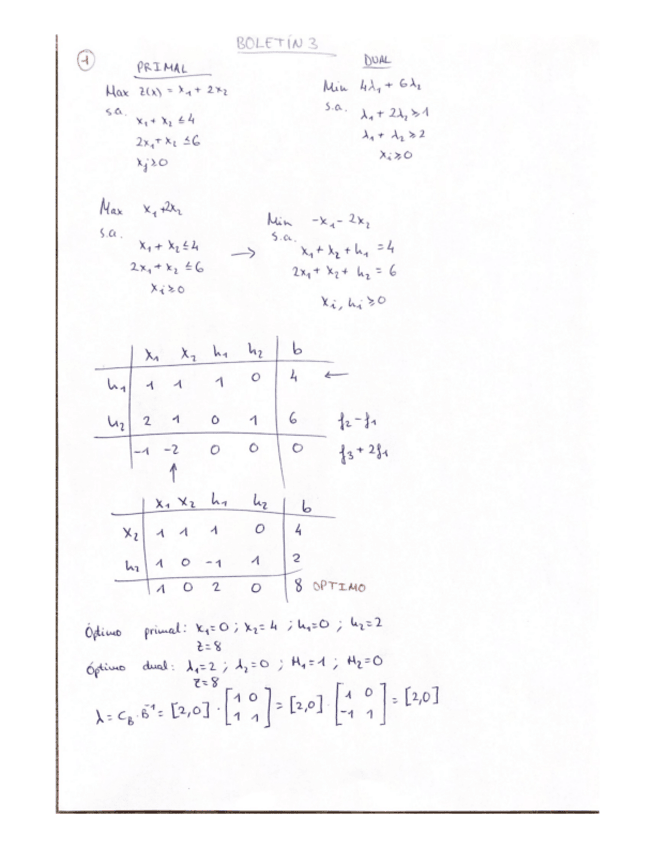 BOLETÍN 3
1
PRIMAL
Max z(x) = x₁ + 2x₂
s.a.
x₁ + x₂ ≤ 4
2x₁ + x₂ ≤ 6
xⱼ ≥ 0
DUAL
Min 4λ₁ + 6λ₂
s.a. λ₁ + 2λ₂ ≥ 1
λ₁ + λ₂ ≥ 2
xᵢ ≥ 0
Max x₁ + 2x₂
s.a.
x₁ + x₂ ≤ 4
2x₁ + x₂ ≤ 6
xᵢ ≥ 0
→
Min -x₁ - 2x₂
s.a.
x₁ + x₂ + h₁ = 4
2x₁ + x₂ + h₂ = 6
xᵢ, hᵢ ≥ 0
x₁ x₂ h₁ h₂ b
h₁ 1 1 1 0 4 ←
h₂ 2 1 0 1 6 f₂ - f₁
-1 -2 0 0 0 f₃ + 2f₁
↑
x₁ x₂ h₁ h₂ b
x₂ 1 1 1 0 4
h₂ 1 0 -1 1 2
1 0 2 0 8 OPTIMO
Óptimo primal: x₁=0 ; x₂=4 ; h₁=0 ; h₂=2
z=8
Óptimo dual: λ₁=2 ; λ₂=0 ; H₁=1 ; H₂=0
z=8
λ = C_B · B⁻¹ = [2,0] · [1 0; 1 1] = [2,0] · [1 0; -1 1] = [2,0]